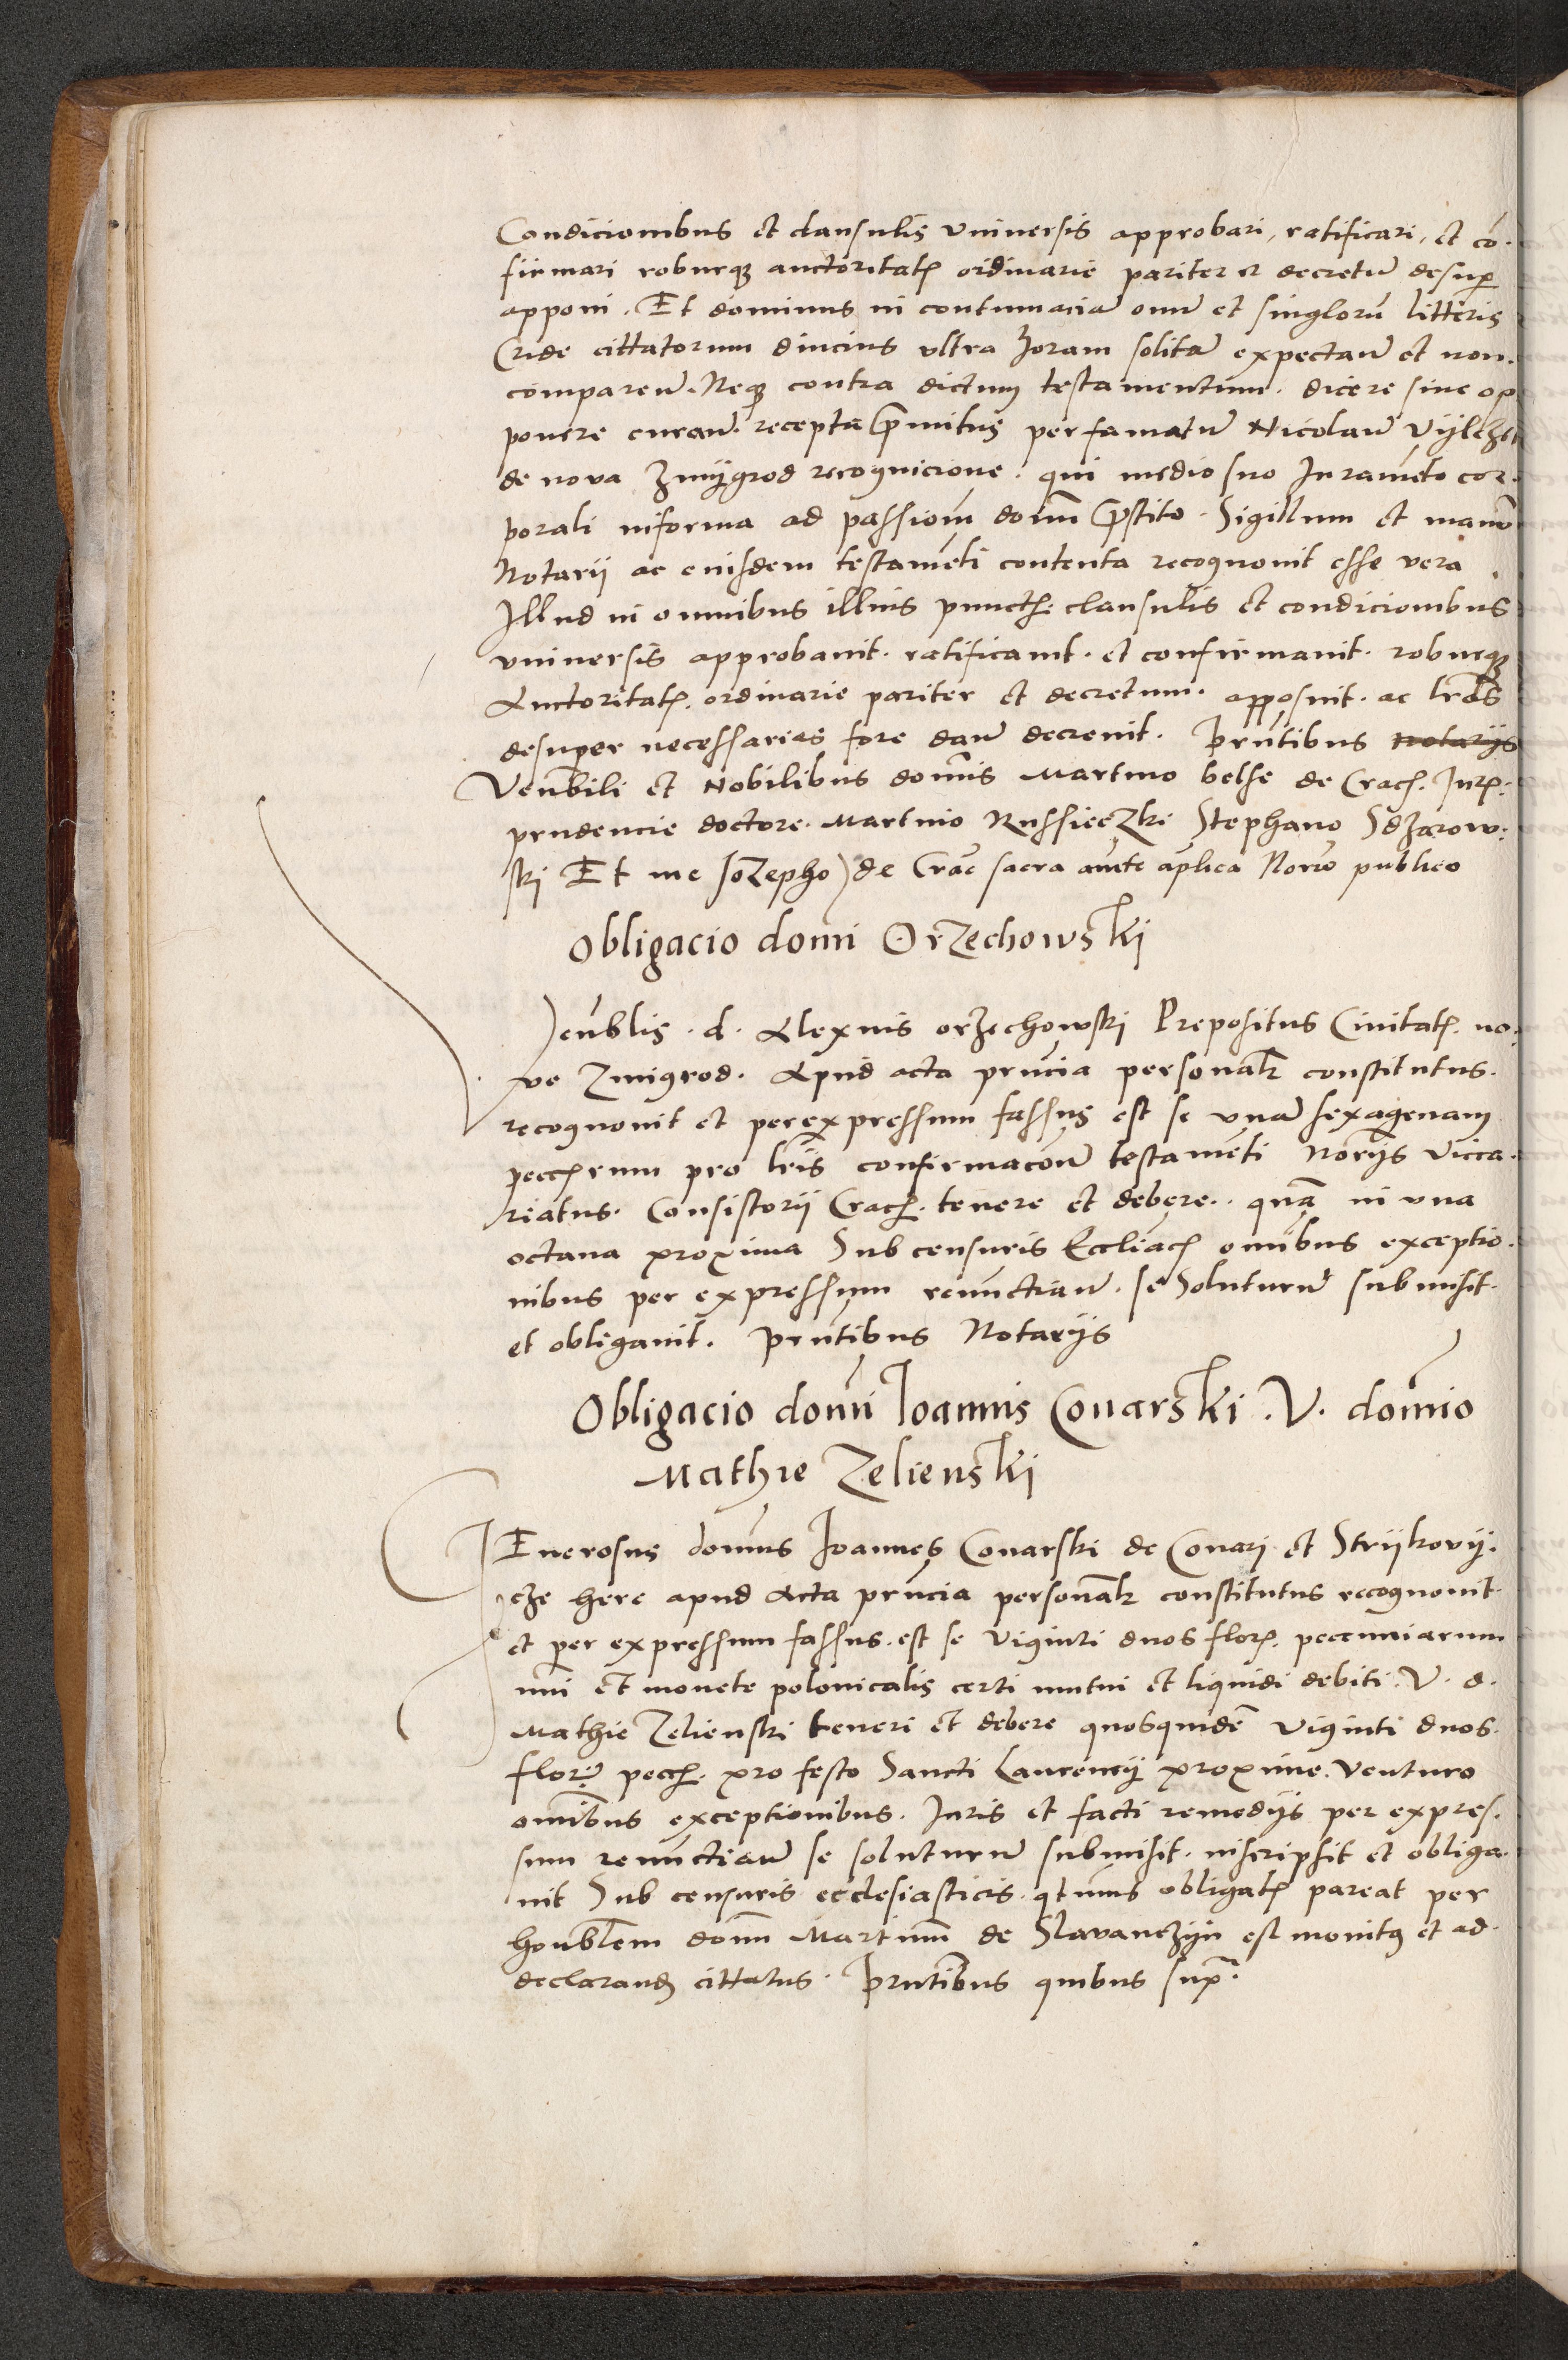 Condicionibus et clausulis universis approbari, ratificari, et co.
firmari roburq auctoritatis ordinarie pariter et decretum desup
apponi. Et dominus in contumacia omn et singlorum litteris
Cride cittatorum diucius ultra horam solitam expectan et non.
comparen. Neq contra dictum testamentum. dicere sive op
ponere curan. recepta prmitus per famatum Nicolaum
de nova Zmijgrod recognicione. qui medio suo Iuramento cor.
porali in forma ad passionem domini prestito. Sigillum et manum
Notarij ac eiusdem testameti contenta recognovit esse vera.
Illud in omnibus illius punctis clausulis et condicionibus
universis approbavit. ratificavit. et confirmavit. roburq
Auctoritatis ordinarie pariter et decretum. apposuit. ac lras
desuper necessarias fore dan decrevit. Prntibus Notarijs
Venbili et Nobilibus domis Martino belse de Crac. Iuris
prudencie doctore. Martino Russieczki Stephano Sdzarow.
ski Et me Iozepho de Crac sacra aucte aplica Norio publico
Obligacio domi Orzechowski
Venblis. d. Alexius orzechowski Prepositus Civitatis no.
ve Zmigrod. Apud acta prncia personalr constitutus.
recognovit et per expressum fassus est se unam sexagenam
pecc rum pro lris confirmacom testamenti Norijs Vicca.
riatus. Consistorij Crac. tenere et debere. quam in una
octava proxima Sub censuris Eccliac omibus exceptio.
nibus per expressum renunctian. se Soluturum submisit.
et obligavit. Prntibus Notarijs
Obligacio domi Ioannis Conarski. V. domio
Mathie Zelienski
GEnerosus domus Ioannes Conarski de Conari et Strijkovij.
cze here apud Acta prncia personalr constitutus recognovit.
et per expressum fassus. est se viginti duos flor. peccuniarum
nui et monete polonicalis certi mutui et liquidi debiti. V. d.
Mathie Zelienski teneri et debere quosquidem viginti duos.
flor pecc. pro festo Sancti Laurencij proxime. venturo
omibus exceptionibus. Iuris et facti remedijs per expres.
sum renunctian se soluturum submisit. inscripsit et obliga.
vit Sub censuris ecclesiasticis. obligatis pareat per
honblem domi Martinum de Slavanczijn est monitus et ad.
declarand cittatus. Prntibus quibus supra.